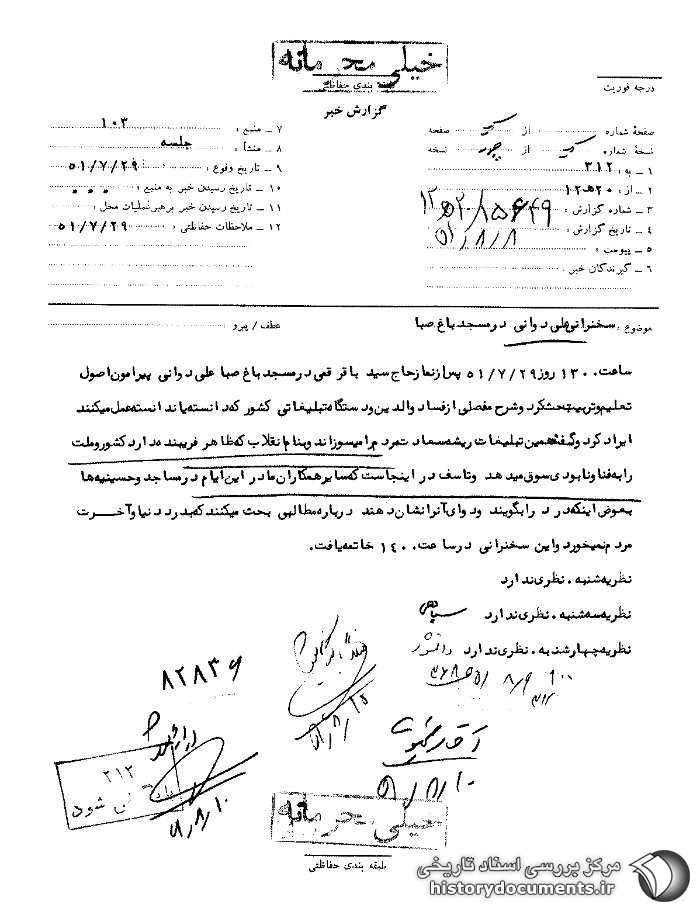 خیلی محرمانه
طبقه بندی حفاظتی
گزارش خبر
درجه فوریت
صفحهٔ شماره یک از یک صفحه
نسخهٔ شماره یک از چهار نسخه
۱ ـ به : ۳۱۲
۲ ـ از : ۲۰ هـ ۱۲
۳ ـ شماره گزارش :
۴ ـ تاریخ گزارش : ۵۱/۸/۸
۵ ـ پیوست :
۶ ـ گیرندگان خبر :
۷ ـ منبع : ۱۰۳
۸ ـ منشأ : جلسه
۹ ـ تاریخ وقوع : ۵۱/۷/۲۹
۱۰ ـ تاریخ رسیدن خبر به منبع :
۱۱ ـ تاریخ رسیدن خبر برهبر عملیات محل :
۱۲ ـ ملاحظات حفاظتی : ۵۱/۷/۲۹
موضوع : سخنرانی علی دوانی در مسجد باغ صبا
عطف / پیرو
ساعت ۱۳۰۰ روز ۵۱/۷/۲۹ پس از نماز حاج سید باقر قمی در مسجد باغ صبا علی دوانی پیرامون اصول
تعلیم و تربیت بحث کرد و شرح مفصلی از فساد والدین و دستگاه تبلیغاتی کشور که دانسته یا ندانسته عمل میکنند
ایراد کرد و گفت همین تبلیغات ریشه سعادت مردم را میسوزاند و بنام انقلاب که ظاهر فریبنده دارد کشور و ملت
را به فنا و نابودی سوق میدهد و تاسف در اینجاست که سایر همکاران ما در این ایام در مساجد و حسینیه ها
بعوض اینکه درد را بگویند و دوای آنرا نشان دهند درباره مطالبی بحث میکنند که بدرد دنیا و آخرت
مردم نمیخورد و این سخنرانی در ساعت ۱۴۰۰ خاتمه یافت.
نظریه شنبه . نظری ندارد
نظریه سه شنبه . نظری ندارد
نظریه چهارشنبه . نظری ندارد
۸۲۸۳۶
۵۱/۸/۱۰
۳۱۲
خیلی محرمانه
طبقه بندی حفاظتی
مرکز بررسی اسناد تاریخی
historydocuments.ir